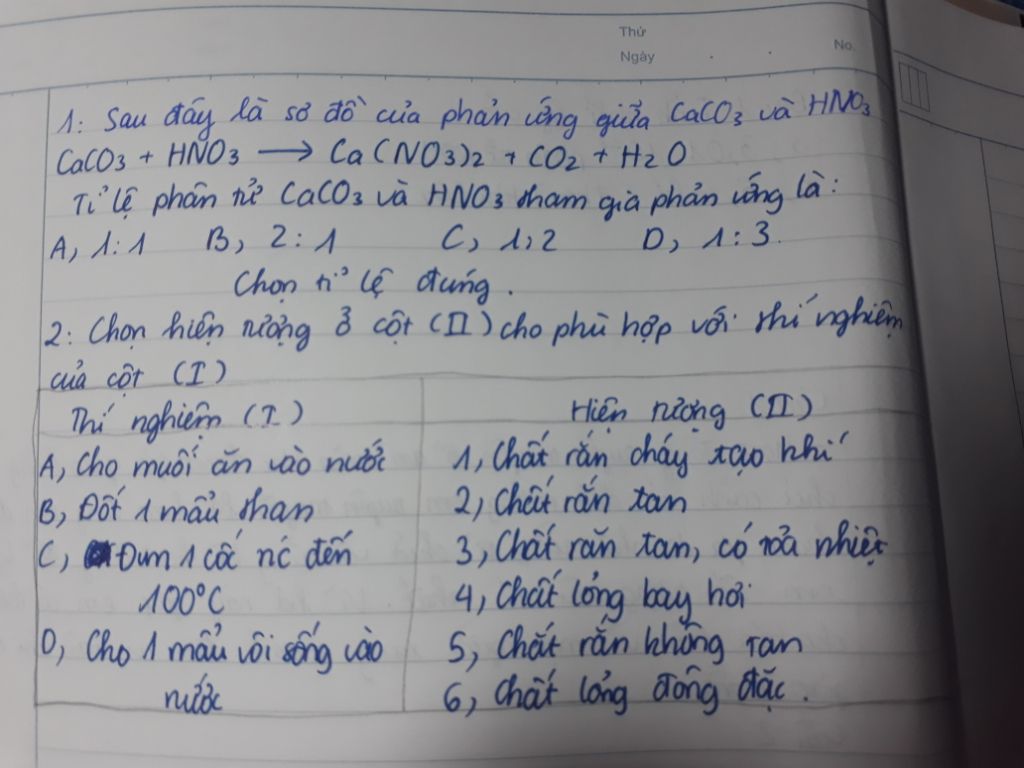 Thứ
Ngày
No.
1: Sau đây là sơ đồ của phản ứng giữa CaCO3 và HNO3
CaCO3 + HNO3 → Ca(NO3)2 + CO2 + H2O
Tỉ lệ phân tử CaCO3 và HNO3 tham gia phản ứng là:
A, 1:1 B, 2:1 C, 1:2 D, 1:3.
Chọn tỉ lệ đúng.
2: Chọn hiện tượng ở cột (II) cho phù hợp với thí nghiệm
của cột (I)
Thí nghiệm (I) Hiện tượng (II)
A, Cho muối ăn vào nước 1, Chất rắn cháy tạo khí
B, Đốt 1 mẩu than 2, Chất rắn tan
C, Đun 1 cốc nc đến 3, Chất rắn tan, có toả nhiệt
100°C 4, Chất lỏng bay hơi
D, Cho 1 mẩu vôi sống vào 5, Chất rắn không tan
nước 6, Chất lỏng đông đặc.